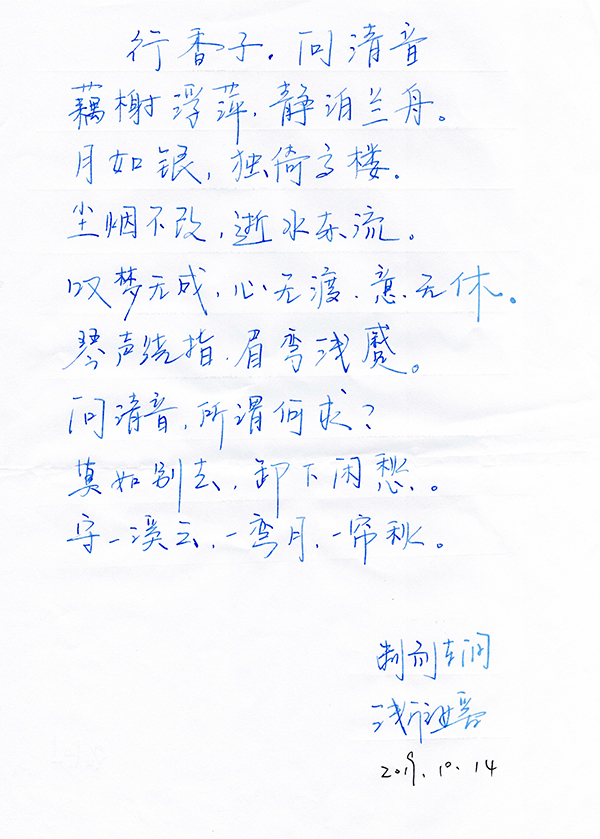 行香子.问清音
藕榭浮萍,静泊兰舟。
月如银,独倚高楼.
尘烟不改,逝水东流。
叹梦无成,心无渡.意.无休。
琴声绕指.眉弯浅蹙。
问清音,所谓何求?
莫如别去,卸下闲愁.。
守一溪云,一弯月,一帘秋。
制剂车间
2019.10.14